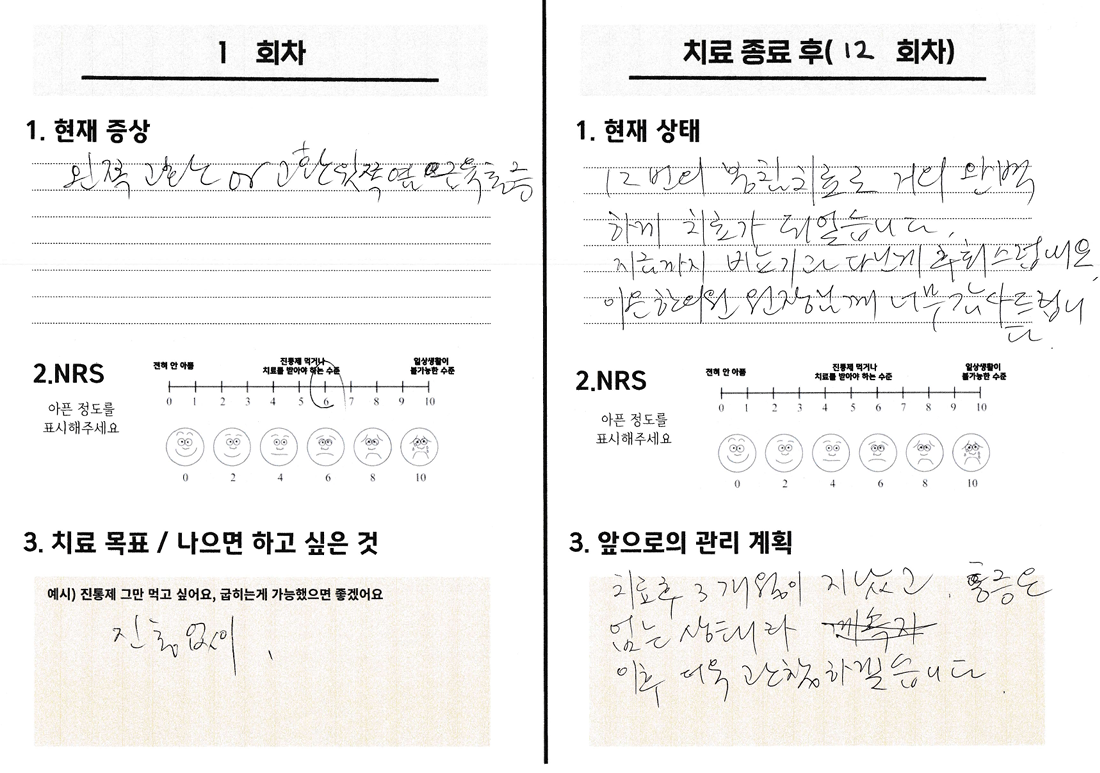 1 회차
1. 현재 증상
왼쪽 고환 or 고환 윗쪽 옆 근육통증
2.NRS
아픈 정도를
표시해주세요
전혀 안 아픔
진통제 먹거나
치료를 받아야 하는 수준
일상생활이
불가능한 수준
0 1 2 3 4 5 6 7 8 9 10
0 2 4 6 8 10
3. 치료 목표 / 나으면 하고 싶은 것
예시) 진통제 그만 먹고 싶어요, 굽히는게 가능했으면 좋겠어요
없이
치료 종료 후( 12 회차)
1. 현재 상태
12번의 봉침치료로 거의 완벽
하게 치료가 되었습니다.
지금까지 비뇨기과 다닌게 후회스럽네요,
이은한의원 원장님께 너무 감사드립니
다.
2.NRS
아픈 정도를
표시해주세요
전혀 안 아픔
진통제 먹거나
치료를 받아야 하는 수준
일상생활이
불가능한 수준
0 1 2 3 4 5 6 7 8 9 10
0 2 4 6 8 10
3. 앞으로의 관리 계획
치료후 3개월이 지났고. 통증은
없는 상태라
이후 더욱 관찰하겠습니다.